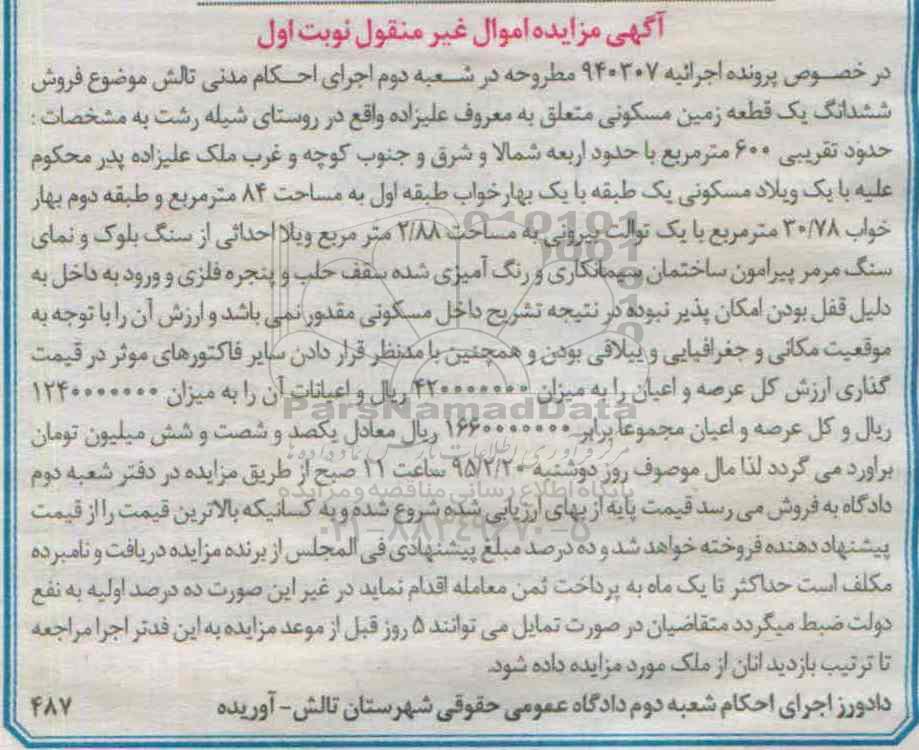 آگهی مزایده اموال غیر منقول نوبت اول
در خصوص پرونده اجرائیه ۹۴۰۳۰۷ مطروحه در شعبه دوم اجرای احکام مدنی تالش موضوع فروش
ششدانگ یک قطعه زمین مسکونی متعلق به معروف علیزاده واقع در روستای شیله رشت به مشخصات :
حدود تقریبی ۶۰۰ مترمربع با حدود اربعه شمالا و شرق و جنوب کوچه و غرب ملک علیزاده پدر محکوم
علیه با یک ویلاد مسکونی یک طبقه با یک بهارخواب طبقه اول به مساحت ۸۴ مترمربع و طبقه دوم بهار
خواب ۳۰/۷۸ مترمربع با یک توالت بیرونی به مساحت ۲/۸۸ متر مربع ویلا احداثی از سنگ بلوک و نمای
سنگ مرمر پیرامون ساختمان سیمانکاری و رنگ آمیزی شده سقف حلب و پنجره فلزی و ورود به داخل به
دلیل قفل بودن امکان پذیر نبوده در نتیجه تشریح داخل مسکونی مقدور نمی باشد و ارزش آن را با توجه به
موقعیت مکانی و جغرافیایی و ییلاقی بودن و همچنین با مدنظر قرار دادن سایر فاکتورهای موثر در قیمت
گذاری ارزش کل عرصه و اعیان را به میزان ۴۲۰۰۰۰۰۰۰ ریال و اعیانات آن را به میزان ۱۲۴۰۰۰۰۰۰۰
ریال و کل عرصه و اعیان مجموعاً برابر ۱۶۶۰۰۰۰۰۰۰ ریال معادل یکصد و شصت و شش میلیون تومان
براورد می گردد لذا مال موصوف روز دوشنبه ۹۵/۲/۲۰ ساعت ۱۱ صبح از طریق مزایده در دفتر شعبه دوم
دادگاه به فروش می رسد قیمت پایه از بهای ارزیابی شده شروع شده و به کسانیکه بالاترین قیمت را از قیمت
پیشنهاد دهنده فروخته خواهد شد و ده درصد مبلغ پیشنهادی فی المجلس از برنده مزایده دریافت و نامبرده
مکلف است حداکثر تا یک ماه به پرداخت ثمن معامله اقدام نماید در غیر این صورت ده درصد اولیه به نفع
دولت ضبط میگردد متقاضیان در صورت تمایل می توانند ۵ روز قبل از موعد مزایده به این فدتر اجرا مراجعه
تا ترتیب بازدید انان از ملک مورد مزایده داده شود.
دادورز اجرای احکام شعبه دوم دادگاه عمومی حقوقی شهرستان تالش- آوریده
۴۸۷
ParsNamadData
پایگاه اطلاع رسانی مناقصه و مزایده
۰۲۱-۸۸۳۴۹۶۷۰-۵